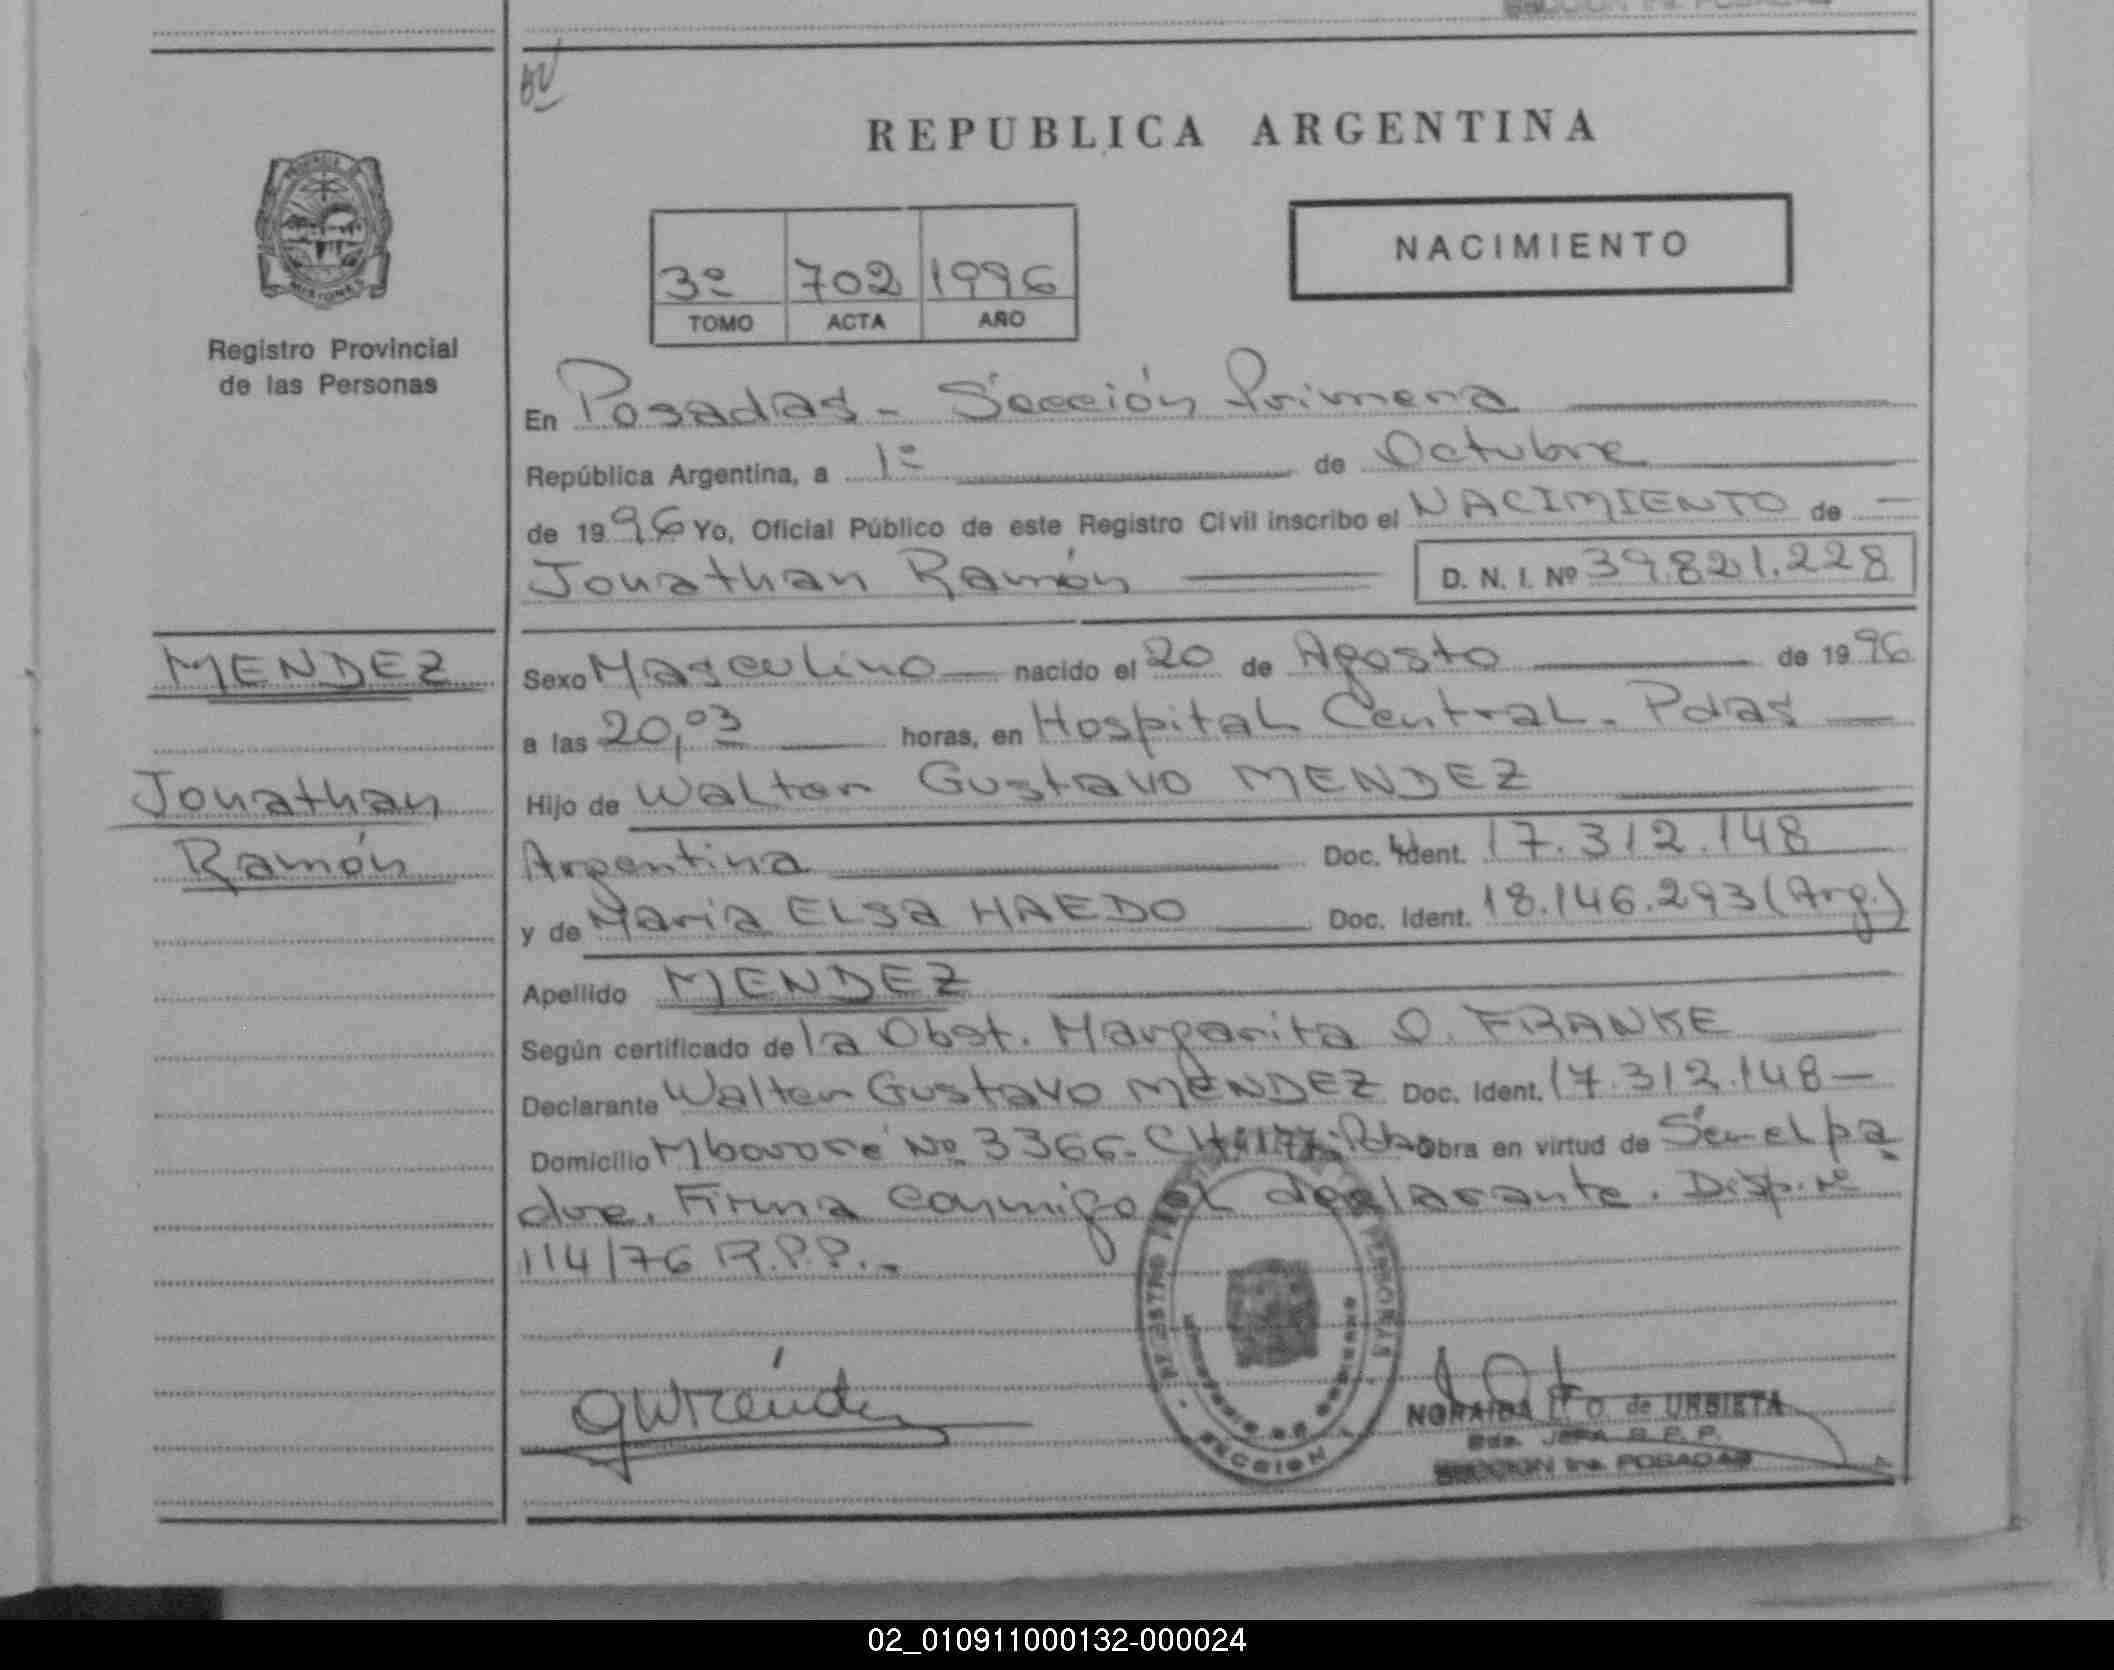 REPUBLICA ARGENTINA
3º 702 1996
TOMO ACTA AÑO
NACIMIENTO
MISIONES
Registro Provincial
de las Personas
En Posadas - Sección Primera
República Argentina, a 1º de Octubre
de 1996 Yo, Oficial Público de este Registro Civil inscribo el NACIMIENTO de
Jonathan Ramón D. N. I. Nº 39.821.228
MENDEZ
Jonathan
Ramón
Sexo Masculino nacido el 20 de Agosto de 1996
a las 20,03 horas, en Hospital Central. Pdas
Hijo de Walter Gustavo MENDEZ
Argentina Doc. Ident. 17.312.148
y de María ELSA HAEDO Doc. Ident. 18.146.293 (Arg.)
Apellido MENDEZ
Según certificado de la Obst. Margarita O. FRANKE
Declarante Walter Gustavo MENDEZ Doc. Ident. 17.312.148-
Domicilio Mbororé Nº 3366. Obra en virtud de Ser el pa
dre. Firma conmigo el declarante. Disp. Nº
114/76 R.P.P.-
SECCION
de URBIETA
Jefa R. P. P.
SECCION 1ra. POSADAS
02_010911000132-000024